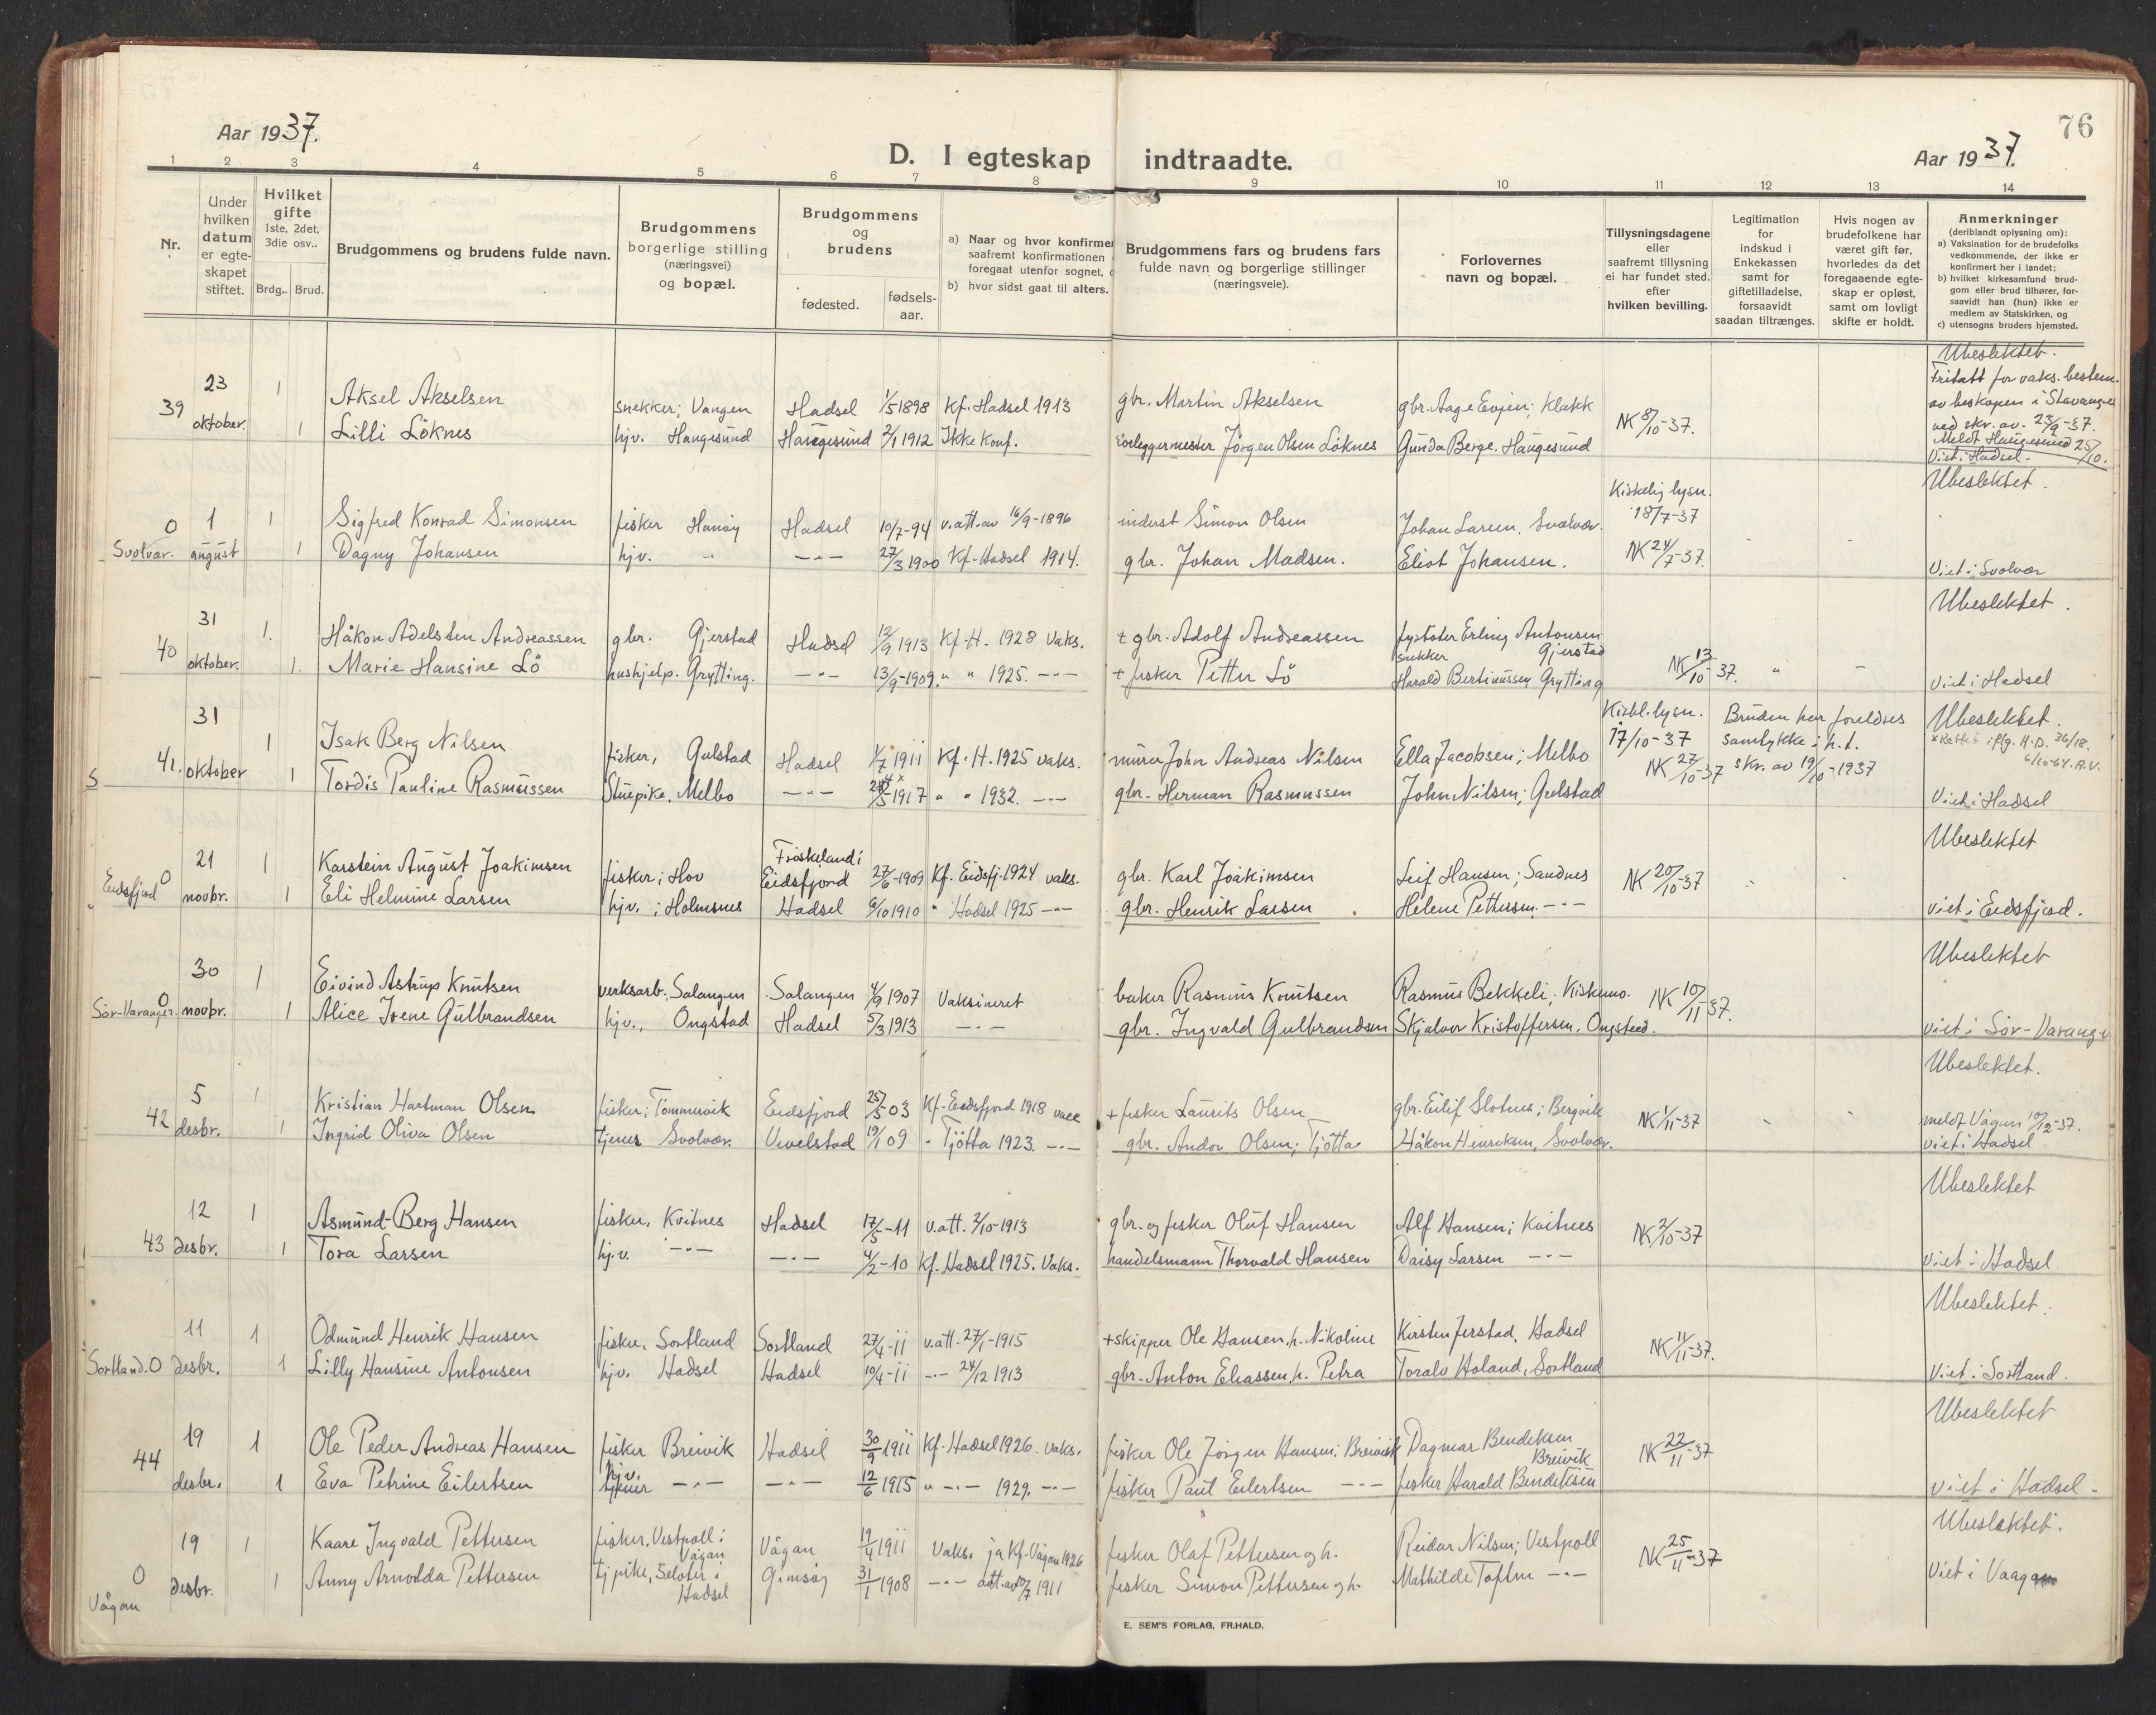 76
Aar 1937.
D. I egteskap indtraadte.
Aar 1937.
1 2 3 4 5 6 7 8 9 10 11 12 13 14
Nr.
Under hvilken datum er egteskapet stiftet.
Hvilket gifte 1ste, 2det, 3die osv..
Brdg.. Brud.
Brudgommens og brudens fulde navn.
Brudgommens borgerlige stilling (næringsvei) og bopæl.
Brudgommens og brudens
fødested.
fødsels-aar.
a) Naar og hvor konfirmer
saafremt konfirmationen
foregaat utenfor sognet,
b) hvor sidst gaat til alters.
Brudgommens fars og brudens fars
fulde navn og borgerlige stillinger
(næringsveie).
Forlovernes
navn og bopæl.
Tillysningsdagene
eller
saafremt tillysning
ei har fundet sted,
efter
hvilken bevilling.
Legitimation
for
indskud i
Enkekassen
samt for
giftetilladelse,
forsaavidt
saadan tiltrænges.
Hvis nogen av
brudefolkene har
været gift før,
hvorledes da det
foregaaende egte-
skap er opløst,
samt om lovligt
skifte er holdt.
Anmerkninger
(deriblandt oplysning om):
a) Vaksination for de brudefolks
vedkommende, der ikke er
konfirmert her i landet;
b) hvilket kirkesamfund brud-
gom eller brud tilhører, for-
saavidt han (hun) ikke er
medlem av Statskirken, og
c) utensogns bruders hjemsted.
39 23 oktober. 1 Aksel Akselsen snekker; Vangen Hadsel 1/5 1898 Kf. Hadsel 1913 gbr. Martin Akselsen gbr. Aage Evjen; Klakk NK 8/10-37.
1 Lilli Löknes hjv. Haugesund Haugesund 2/1 1912 Ikke konf. Jörgen Olsen Löknes Gunda Berge. Haugesund
Ubeslektet.
Fritatt for vaks. bestem.
av biskopen i Stavanger
ved skr. av. 23/9-37.
Meldt Haugesund 25/10.
Viet i Hadsel.
0 Svolvær. 1 august 1 Sigfred Konrad Simonsen fisker Hanöy Hadsel 10/7-94 v.att. av 16/9-1896 inderst Simon Olsen Johan Larsen. Svolvær. Kirkelig lysn. 18/7-37
1 Dagny Johansen hjv. " -"- 27/3 1900 Kf. Hadsel 1914. gbr. Johan Madsen. Eliot Johansen. NK 24/7-37.
Ubeslektet.
Viet i Svolvær
40 31 oktober. 1. Håkon Adelsten Andreassen gbr. Gjerstad Hadsel 12/9 1913 Kf. H. 1928 Vaks. + gbr. Adolf Andreassen Erling Antonsen Gjerstad
1. Marie Hansine Lö hushjelp. Grytting. -"- 13/9-1909. " " 1925. -"- + fisker Petter Lö snekker Harald Bertinussen Grytting NK 13/10-37.
Ubeslektet.
Viet i Hadsel
S 41. 31 oktober 1 Isak Berg Nilsen fisker, Gulstad Hadsel 1/7 1911 Kf. H. 1925 vaks. murer John Andreas Nilsen Ella Jacobsen; Melbo Kirkl. lysn. 17/10-37
1 Tordis Pauline Rasmussen Stuepike, Melbo -"- 1917 " " 1932. -"- gbr. Herman Rasmussen John Nilsen; Gulstad NK 27/10-37
Bruden har foreldres
samtykke i h.t.
skr. av 19/10-1937
Ubeslektet.
x Rettet iflg. H.D. 36/18.
6/10-64. A.V.
Viet i Hadsel
0 Eidsfjord 21 novbr. 1 Karstein August Joakimsen fisker; Hov Fröskeland i Eidsfjord 27/6-1909 Kf. Eidsfj. 1924 vaks. gbr. Karl Joakimsen Leif Hansen; Sandnes NK 20/10-37
1 Eli Helmine Larsen hjv. i Holmsnes Hadsel 9/10 1910 " Hadsel 1925 -"- gbr. Henrik Larsen Helene Pettersen. -"-
Ubeslektet
Viet i Eidsfjord.
0 Sör-Varanger. 30 novbr. 1 Eivind Astrup Knutsen verksarb. Salangen Salangen 4/9 1907 Vaksineret baker Rasmus Knutsen Rasmus Bekkeli, Kirkemo. NK 10/11-37.
1 Alice Irene Gulbrandsen hjv., Ongstad Hadsel 5/3 1913 -"- gbr. Ingvald Gulbrandsen Skjalvor Kristoffersen, Ongstad.
Ubeslektet
viet i Sör-Varange
42 5 desbr. 1 Kristian Hartman Olsen fisker; Tömmervik Eidsfjord 25/5 03 Kf. Eidsfjord 1918 + fisker Laurits Olsen gbr. Eilif Slotnes; Bergvik NK 1/11-37
1 Ingrid Oliva Olsen tjener Svolvær. Vevelstad 19/1 09 " Tjötta 1923. -"- gbr. Andor Olsen; Tjötta Håkon Henriksen, Svolvær.
Ubeslektet.
meldt Vågan 10/12-37.
viet i Hadsel
43 12 desbr. 1 Asmund Berg Hansen fisker, Kvitnes Hadsel 17/5-11 v.att. 2/10-1913 gbr. og fisker Oluf Hansen Alf Hansen; Kvitnes NK 2/10-37
1 Tora Larsen hj.v. -"- -"- 4/2-10 Kf. Hadsel 1925. Vaks. handelsmann Thorvald Hansen Daisy Larsen -"-
Ubeslektet
Viet i Hadsel.
Sortland. 0 11 desbr. 1 Odmund Henrik Hansen fisker. Sortland Sortland 27/4-11 v.att. 27/1-1915 + skipper Ole Hansen. h. Nikoline Kirsten Jerstad, Hadsel NK 11/11-37.
1 Lilly Hansine Antonsen hjv. Hadsel Hadsel 10/4-11 -"- 24/12 1913 gbr. Anton Eliassen h. Petra Toralv Holand, Sortland
Ubeslektet.
Viet i Sortland.
44 19 desbr. 1 Ole Peder Andreas Hansen fisker Breivik Hadsel 30/9 1911 Kf. Hadsel 1926. vaks. fisker Ole Jörgen Hansen; Breivik Dagmar Bendiksen Breivik NK 22/11-37
1 Eva Petrine Eilertsen hjv. tjener -"- -"- 12/6 1915 " -"- 1929. -"- fisker Paul Eilertsen -"- fisker Harald Bendiksen
Ubeslektet
viet i Hadsel.
0 Vågan 19 desbr. 1 Kaare Ingvald Pettersen fisker, Vestpoll i Vågan Vågan 19/4 1911 Vaks. ja Kf. Vågan 1926 fisker Olaf Pettersen og h. Reidar Nilsen; Vestpoll NK 25/11-37
1 Anny Arnolda Pettersen tj.pike, i Hadsel Gimsöy 31/1 1908 -"- att. av 1911 fisker Simon Pettersen og h. Mathilde -"-
Ubeslektet.
Viet i Vaagan
E. SEM'S FORLAG, FR.HALD.